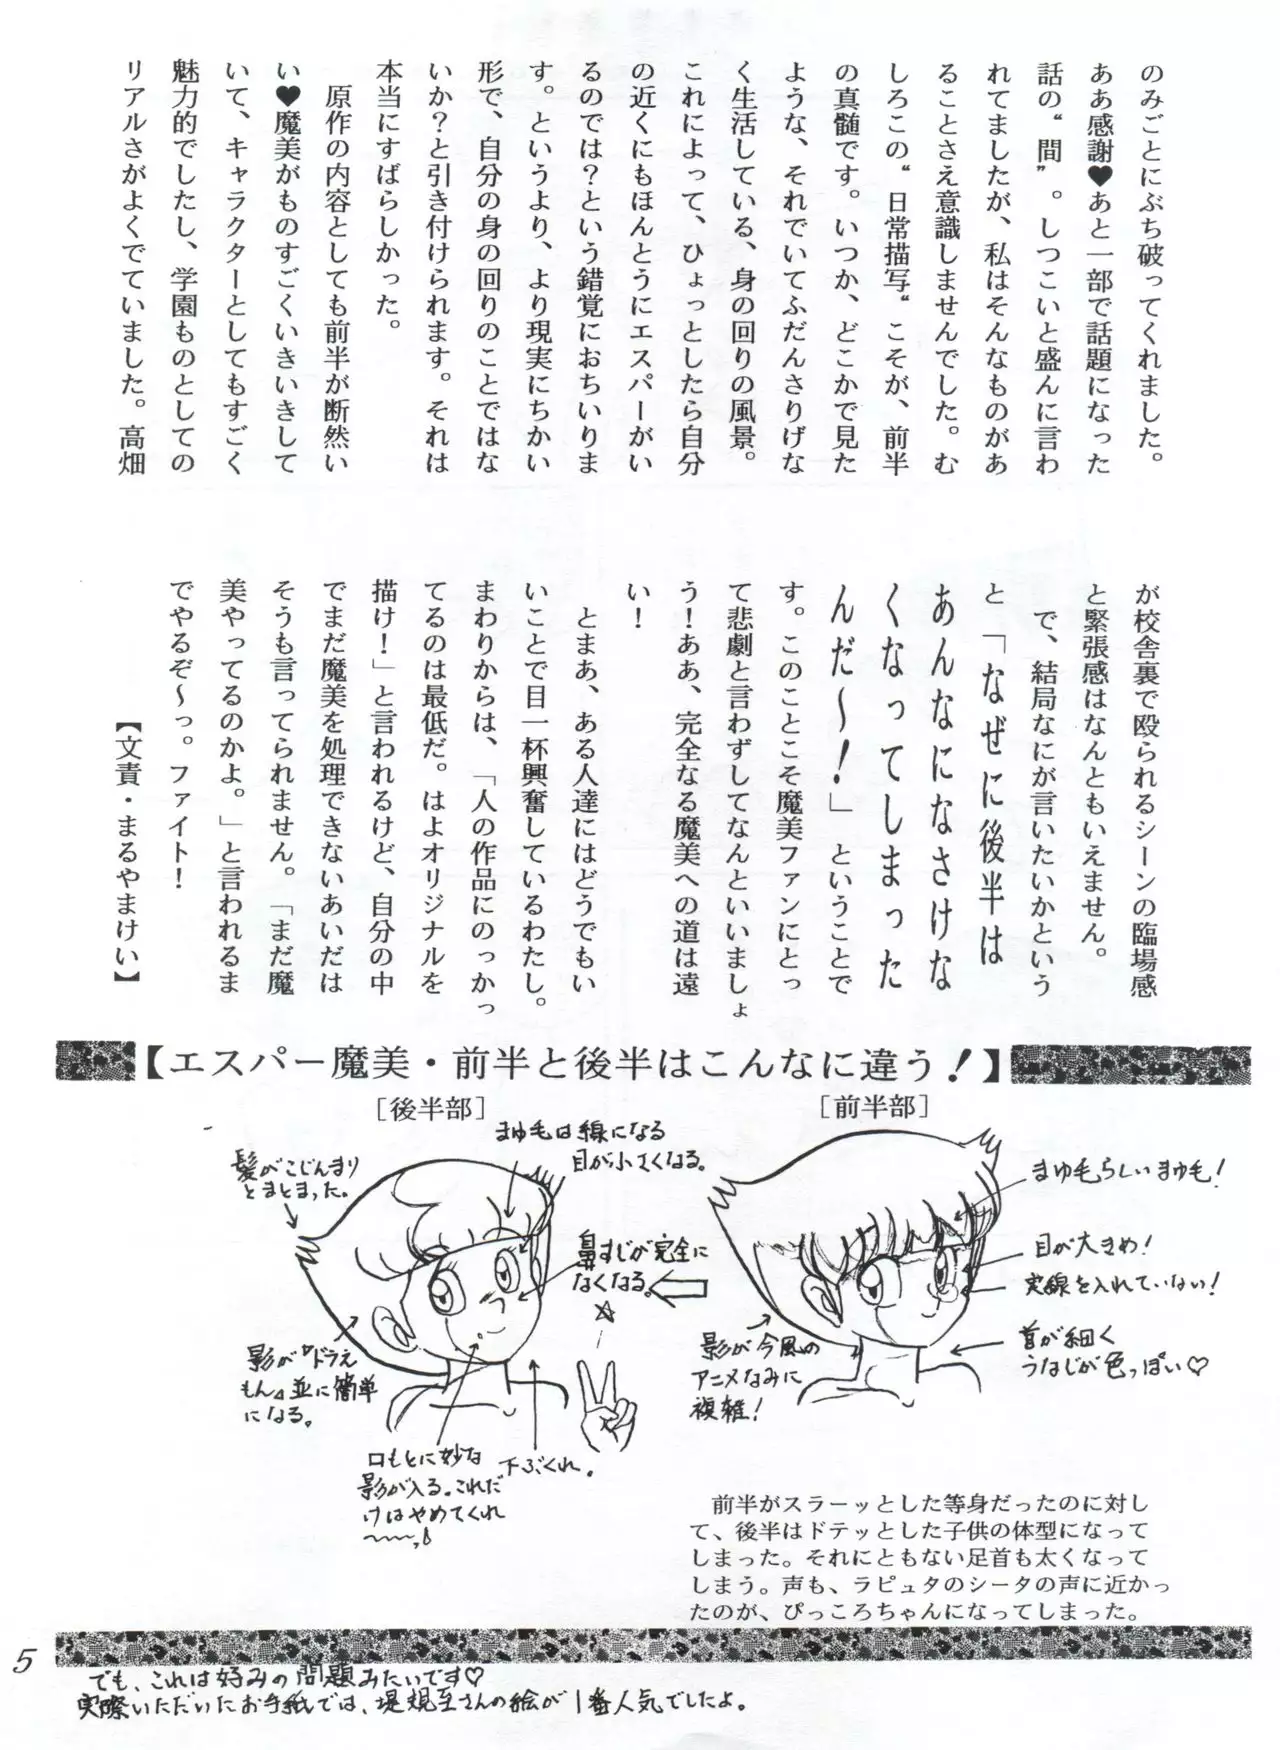 のみごとにぶち破ってくれました。
ああ感謝♥あと一部で話題になった
話の“間”。しつこいと盛んに言わ
れてましたが、私はそんなものがあ
ることさえ意識しませんでした。む
しろこの“日常描写“こそが、前半
の真髄です。いつか、どこかで見た
ような、それでいてふだんさりげな
く生活している、身の回りの風景。
これによって、ひょっとしたら自分
の近くにもほんとうにエスパーがい
るのでは？という錯覚におちいりま
す。というより、より現実にちかい
形で、自分の身の回りのことではな
いか？と引き付けられます。それは
本当にすばらしかった。
　原作の内容としても前半が断然い
い♥魔美がものすごくいきいきして
いて、キャラクターとしてもすごく
魅力的でしたし、学園ものとしての
リアルさがよくでていました。高畑
が校舎裏で殴られるシーンの臨場感
と緊張感はなんともいえません。
　で、結局なにが言いたいかという
と「なぜに後半は
あんなになさけな
くなってしまった
んだ～！」ということで
す。このことこそ魔美ファンにとっ
て悲劇と言わずしてなんといいましょ
う！ああ、完全なる魔美への道は遠
い！
　とまあ、ある人達にはどうでもい
いことで目一杯興奮しているわたし。
まわりからは、「人の作品にのっかっ
てるのは最低だ。はよオリジナルを
描け！」と言われるけど、自分の中
でまだ魔美を処理できないあいだは
そうも言ってられません。「まだ魔
美やってるのかよ。」と言われるま
でやるぞ～っ。ファイト！
【文責・まるやまけい】
【エスパー魔美・前半と後半はこんなに違う！】
［後半部］
［前半部］
まゆ毛は線になる
目が小さくなる。
髪がこじんまり
とまとまった。
鼻すじが完全に
なくなる。
影が『ドラえ
もん』並に簡単
になる。
口もとに妙な
影が入る。これだ
けはやめてくれ
〜〜〜っ♪
下ぶくれ。
まゆ毛らしいまゆ毛！
目が大きめ！
実線を入れていない！
首が細く
うなじが色っぽい♡
影が今風の
アニメなみに
複雑！
　前半がスラーッとした等身だったのに対し
て、後半はドテッとした子供の体型になって
しまった。それにともない足首も太くなって
しまう。声も、ラピュタのシータの声に近かっ
たのが、ぴっころちゃんになってしまった。
5
でも、これは好みの問題みたいです♡
実際いただいたお手紙では、堤規至さんの絵が1番人気でしたよ。